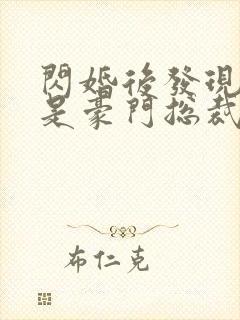 閃婚後發現
是豪門總裁
布仁克